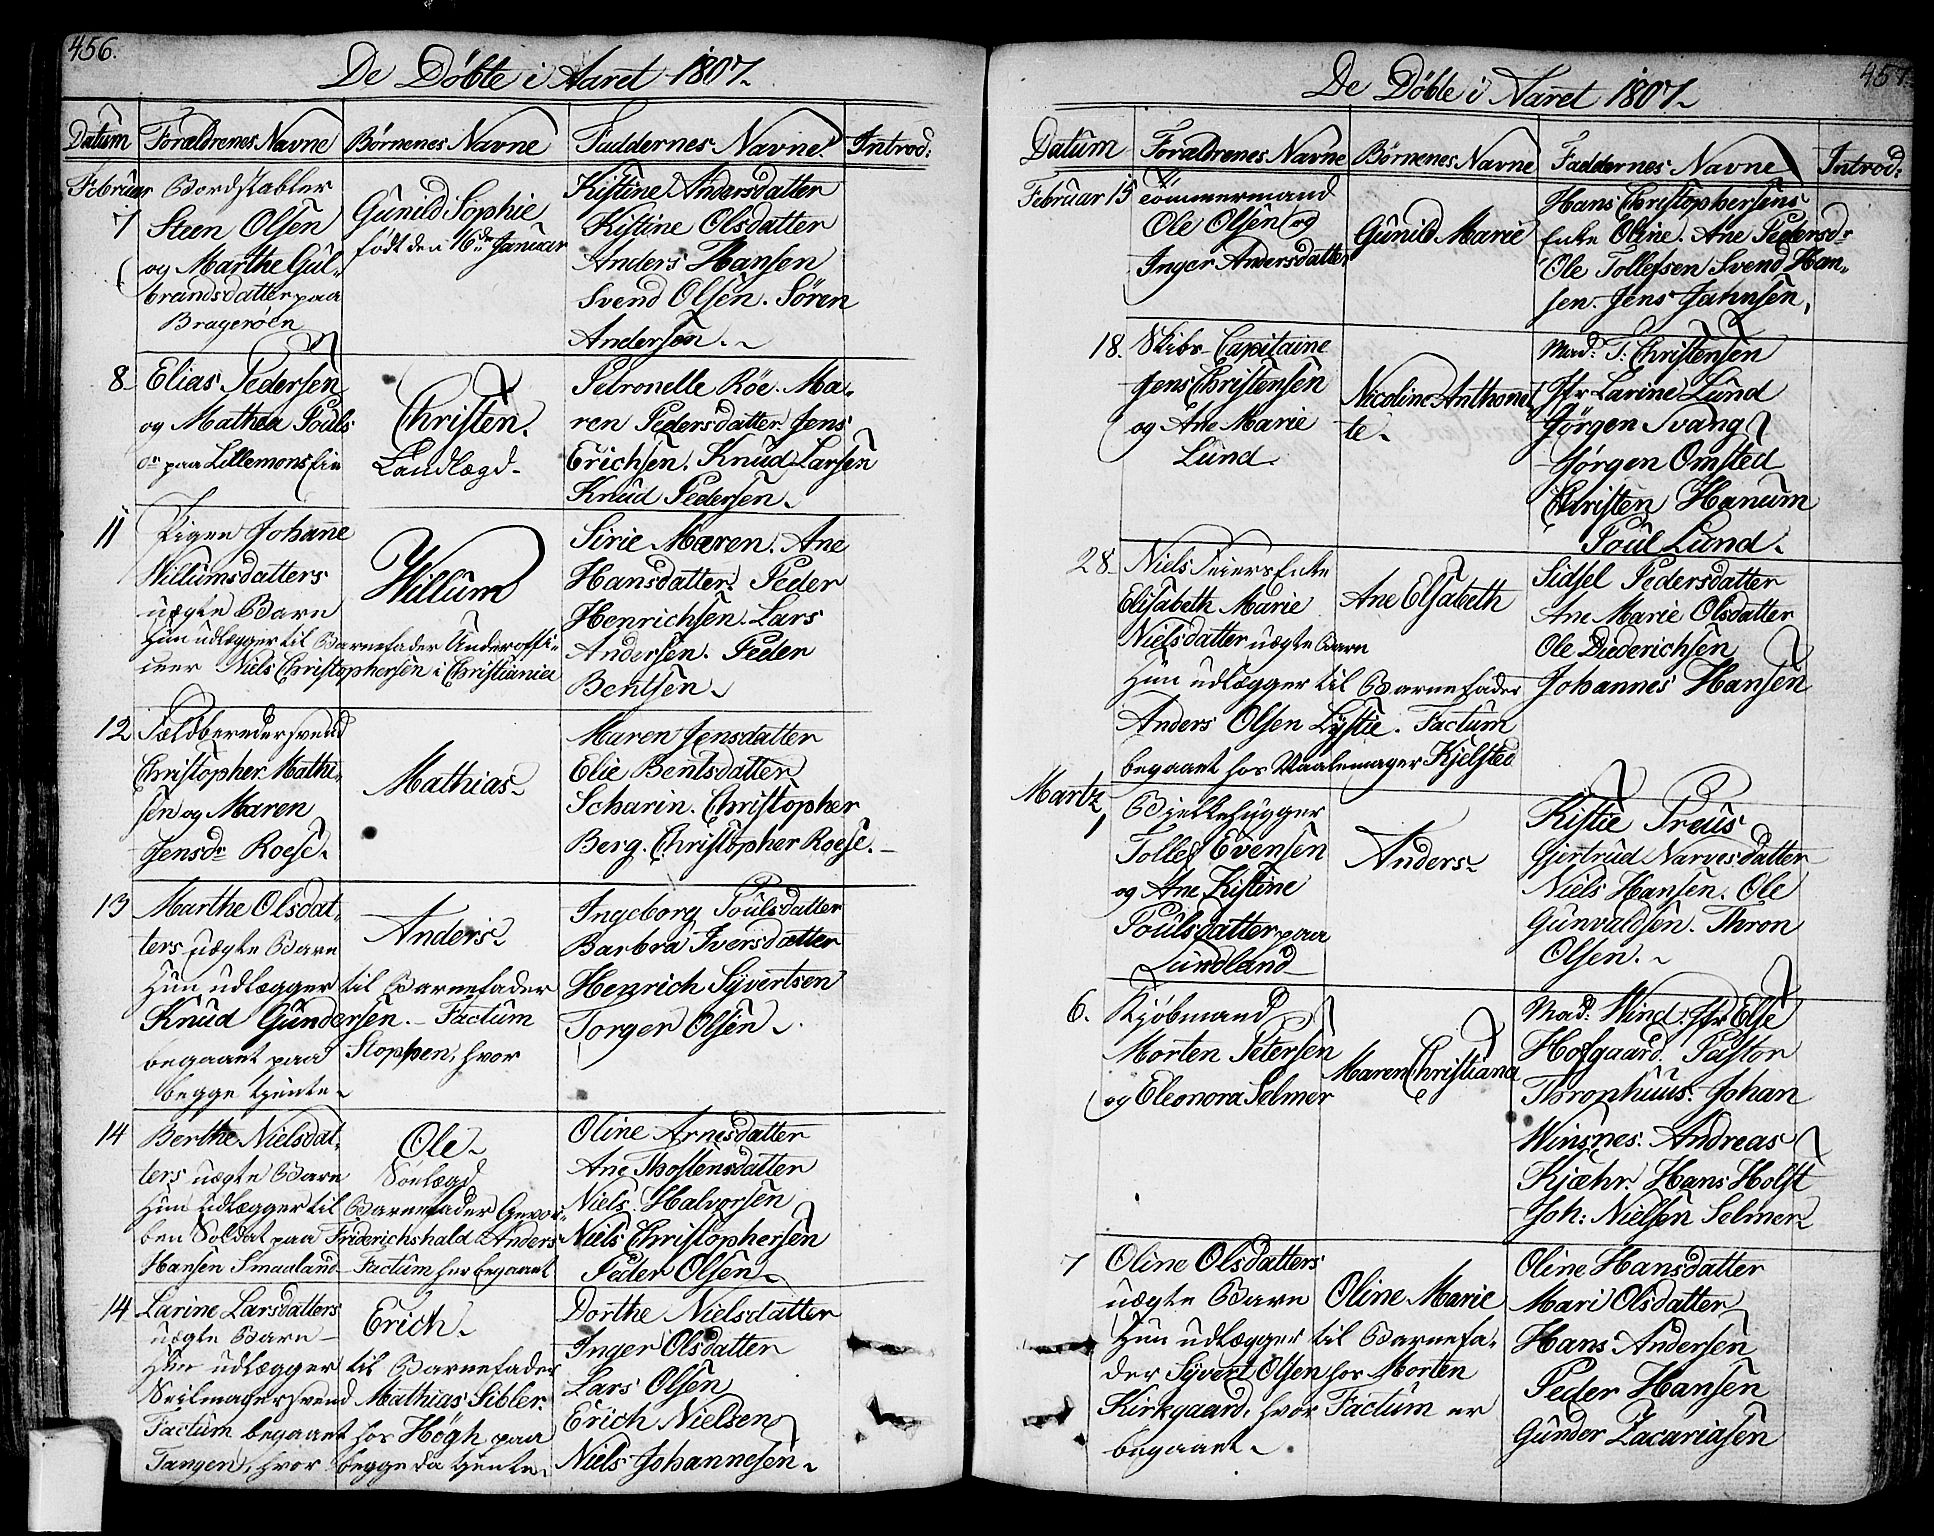 456.
De Döbte i Aaret 1807.
Datum Forældrenes Navne Börnenes Navne Faddernes Navne. Introd:
Februar
7
Bordstabler
Steen Olsen
og Marthe Gul-
brandsdatter paa
Bragerøen
Gunild Sophie
födt den 16de Januar
Kistine Andersdatter
Kistine Olsdatter
Anders Hansen
Svend Olsen. Sören
Andersen.
8
Elias Pedersen
og Mathea Pouls
dr paa Lillemonsfin
Christen.
Landlægd.
Petronelle Röe. Ma-
ren Pedersdatter. Jens
Erichsen. Knud Larsen
Knud Pedersen.
11
Pigen Johanne
Willumsdatters
uægte Barn
Hun udlægger til Barnefader Underoffi-
ceer Niels Christophersen i Christiania
Willum
Sirie Maren. Ane
Hansdatter. Peder
Henrichsen. Lars
Andersen. Peder
Bentsen.
12
Feldberedersvend
Christopher Mathi-
sen og Maren
Jensdr Roese.
Mathias.
Maren Jensdatter
Elie Bentsdatter
Scharin. Christopher
Berg. Christopher Roese.
13
Marthe Olsdat-
ters uægte Barn
Hun udlægger til Barnefader
Knud Gundersen. Factum
begaaet paa Stoppen, hvor
begge tjente.
Anders.
Ingeborg Poulsdatter
Barbra Iversdatter
Henrich Syvertsen
Torger Olsen.
14
Berthe Nielsdat-
ters uægte Barn
Hun udlægger til Barnefader Gevor-
ben Soldat paa Friderichshald Anders
Hansen Smaaland Factum her begaaet
Ole.
Söelægd
Oline Arnesdatter
Ane Thostensdatter
Niels Halvorsen
Niels Christophersen
Peder Olsen.
14
Larine Larsdatters
uægte Barn
Hun udlægger til Barnefader
Seilmagersvend Mathias Sibler.
Factum begaaet hos Högh paa
Tangen, hvor begge da tjente.
Erich.
Dorthe Nielsdatter
Inger Olsdatter
Lars Olsen
Erich Nielsen
Niels Johannesen.
457.
De Döbte i Aaret 1807.
Datum Forældrenes Navne Börnenes Navne Faddernes Navne Introd:
Februar 15
Tömmermand
Ole Olsen og
Inger Andersdatter
Gunild Marie
Hans Christophersens
Enke Oline. Ane Pedersdr
Ole Tollefsen Svend Han-
sen. Jens Jahnsen.
18.
Skibs Capitaine
Jens Christensen
og Ane Marie
Lund.
Nicoline Anthonet-
te.
Mad: T: Christensen
Jfr Larine Lund
Jörgen Svang
Jörgen Omsted
Christen Hanum
Poul Lund.
28.
Niels Feiers Enke
Elisabeth Marie
Nielsdatter uægte Barn
Hun udlægger til Barnefader
Anders Olsen Lystie. Factum
begaaet hos Vaabenmager Kjelsted
Ane Elsabeth
Sidsel Pedersdatter
Ane Marie Olsdatter
Ole Diederichsen
Johannes Hansen
Martz
1
Bjelkehugger
Tollef Evensen
og Ane Kistine
Poulsdatter paa
Lundland
Anders.
Kistie Preus
Gjertrud Narvesdatter
Niels Hansen. Ole
Gunvaldsen. Thron
Olsen.
6.
Kjöbmand
Morten Petersen
og Eleonora Selmer
Maren Christiana
Mad: Wind: Jfr Else
Hofgaard. Pastor
Thronhuus. Johan
Winsnes. Andreas
Kjæhr. Hans Holst
Joh: Nielsen Selmer
7
Oline Olsdatters
uægte Barn
Hun udlægger til Barnefa-
der Syvert Olsen hos Morten
Kirkgaard, hvor Factum er
begaaet.
Oline Marie
Oline Hansdatter
Mari Olsdatter
Hans Andersen
Peder Hansen
Gunder Zacariasen